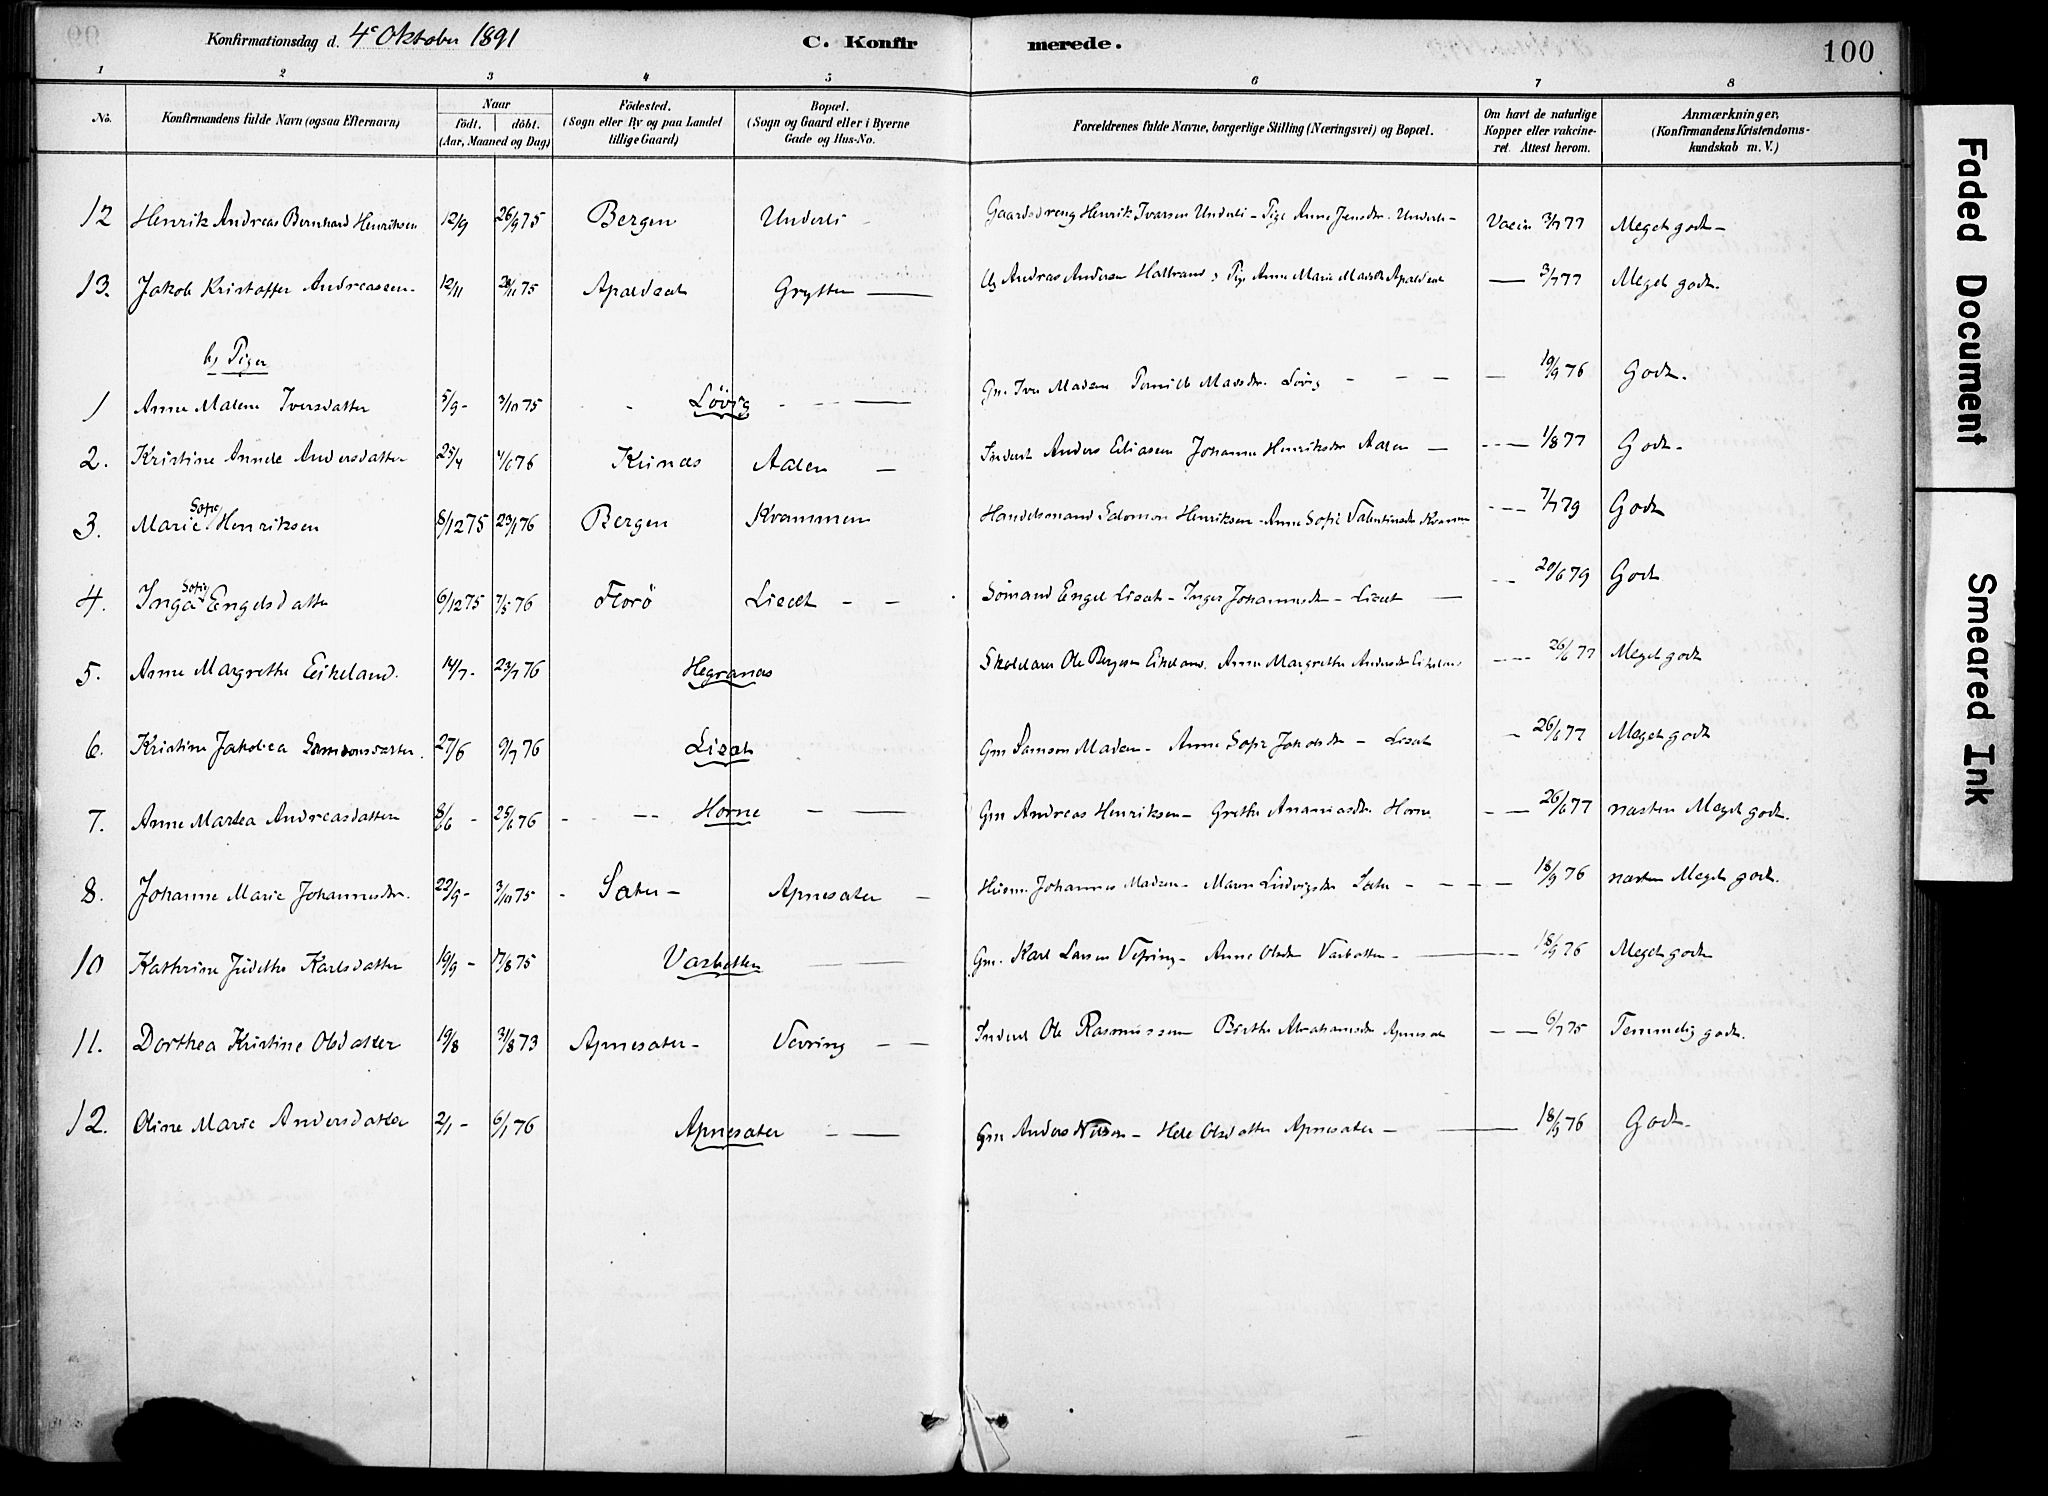 Konfirmationsdag d. 4e Oktober 1891 C. Konfirmerede. 100
1 2 3 4 5 6 7 8
No. Konfirmandens fulde Navn (ogsaa Efternavn) Naar födt. döbt. (Aar, Maaned og Dag) Födested. (Sogn eller By og paa Landet tillige Gaard) Bopæl. (Sogn og Gaard eller i Byerne Gade og Hus-No. Forældrenes fulde Navne, borgerlige Stilling (Næringsvei) og Bopæl. Om havt de naturlige Kopper eller vakcineret. Attest herom. Anmærkninger, (Konfirmandens Kristendomskundskab m. V.)
12 Henrik Andreas Bernhard Henriksen 12/9 26/9 75 Bergen Underli Gaardsdreng Henrik Ivarsen Underli - Pige Anne Jensdtr. Underli - Vacin 3/7 77 Meget godt -
13. Jakob Kristoffer Andreassen - 12/11 28/11 75 Apaldset Grytten — Ug Andreas Andersen Halbrand; Pige Anne Marie Madsdtr Apaldset — 3/7 77 Meget godt.
b, Piger
1 Anne Malene Iversdatter 5/9 - 3/10 75 Lövig - — Gm. Iver Madsen Pernille Madsdtr. Lövig - - - — 19/9 76 Godt.
2. Kristine Annele Andersdatter 25/4 4/6 76 Kinnes Aalen — Anders Eliasen Johanne Henriksdtr Aalen — - - — 1/8 77 Godt -
3. Marie Sofie Henriksen 8/12 75 23/1 76 Bergen Kvammen Handelsmand Salomon Henriksen - Anne Sofie Valentinsdtr Kvammen - - - 7/7 79 Godt
4. Inga Sofie Engelsdatter 6/12 75 7/5 76 Florö Liset - - Sömand Engel Liset - Inger Johannesdtr - Liset — - - 20/6 79 Godt
5. Anne Margrethe Eikeland. 14/7 - 23/7 76 Hegranes Skolelærer Ole Bergesen Eikeland. Anne Margrethe Andersdtr Eikeland - - — 26/6 77 Meget godt
6. Kristine Jakobea Samsonsdatter. 27/6 9/7 76 Liset Gm Samson Madsen - Anne Sofie Jakobsdtr - Liset - 26/6 77 Meget godt
7. Anne Martea Andreasdatter 8/6 - 25/6 76 - - - Horne - — Gm Andreas Henriksen - Grethe Ananiasdtr. Horne - - — 26/6 77 næsten Meget godt.
8. Johanne Marie Johannesdtr. 22/9 - 3/10 75 - Sæter - Apnesæter - Husm. Johannes Madsen - Maren Ludvigsdtr Sæter - - — 18/9 76 næsten Meget godt.
10 Kathrine Judithe Karlsdatter 19/9 - 17/8 75 Varbotten — — Gm. Karl Larsen Vefring - Anne Olsdtr Varbotten - — 18/9 76 Meget godt
11. Dorthea Kristine Olsdatter 19/8 31/8 73 Apnesæter - Vevring - - Ole Rasmussen Birthe Abrahamsdtr Apnesæt - — 6/7 75 Temmelig godt.
12. Oline Marie Andersdatter 2/1 - 6/1 76 Apnesæter - — Gm Anders Nilsen - Hele Olsdatter Apnesæter - — 18/9 76 Godt.
Faded Document
Smeared Ink